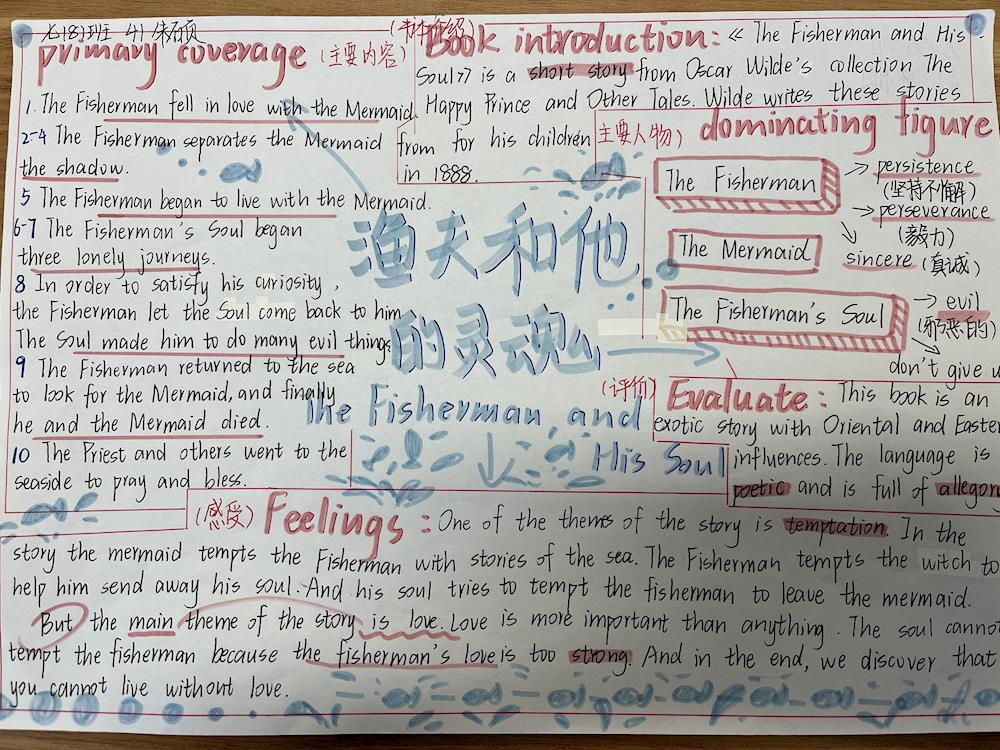 primary coverage (主要内容)
1. The Fisherman fell in love with the Mermaid.
2-4 The Fisherman separates the Mermaid
the shadow.
5 The Fisherman began to live with the Mermaid.
6-7 The Fisherman's Soul began
three lonely journeys.
8 In order to satisfy his curiosity,
the Fisherman let the Soul come back to him
The Soul made him to do many evil things
9 The Fisherman returned to the sea
to look for the Mermaid, and finally
he and the Mermaid died.
10 The Priest and others went to the
seaside to pray and bless.
Book introduction: 《 The Fisherman and His
Soul》 is a short story from Oscar Wilde's collection The
Happy Prince and Other Tales. Wilde writes these stories
from for his children
in 1888.
(主要人物) dominating figure
The Fisherman
persistence
(坚持不懈)
perseverance
(毅力)
sincere (真诚)
The Mermaid
The Fisherman's Soul
evil
(邪恶的)
don't give u
渔夫和他
的灵魂
The Fisherman, and
His Soul
(评价) Evaluate: This book is an
exotic story with Oriental and Easter
influences. The language is
poetic and is full of allegory
(感受) Feelings: One of the themes of the story is temptation. In the
story the mermaid tempts the Fisherman with stories of the sea. The Fisherman tempts the witch to
help him send away his soul. And his soul tries to tempt the fisherman to leave the mermaid.
But the main theme of the story is love. Love is more important than anything. The soul cannot
tempt the fisherman because the fisherman's love is too strong. And in the end, we discover that
you cannot live without love.